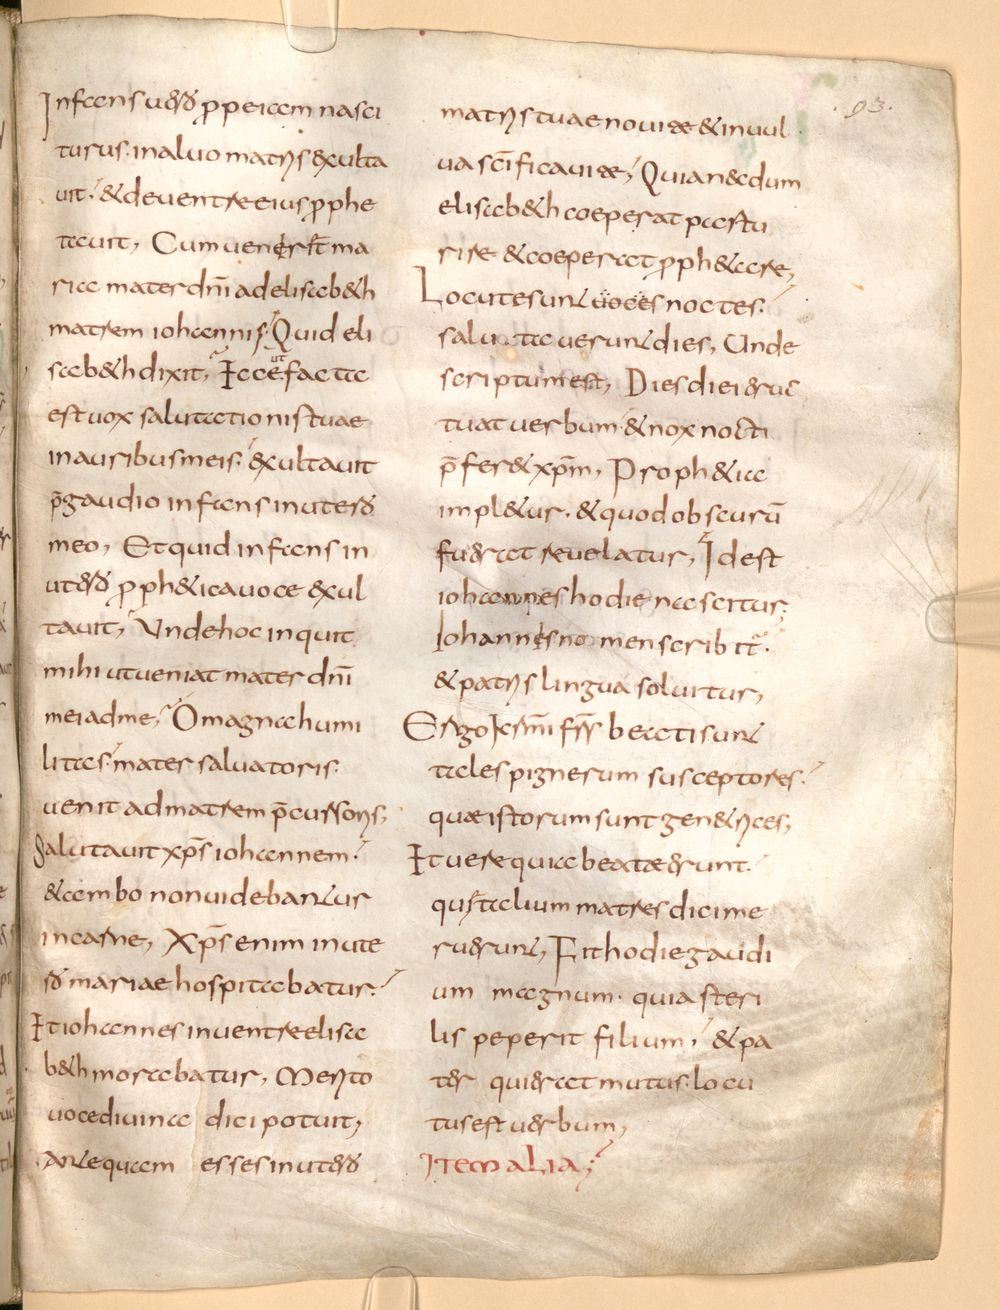 .93.
Infans uter̄o ꝓpeiam nasci
turus. in aluo matris exulta
uit. & deuentre eius ꝓphe
tauit, Cum uenisset ma
ria mater dn̄i ad elisab&h
matrem iohannis. Quid eli
sab&h dixit, Ecce ut facta
est uox salutationis tuae
in auribus meis. exultauit
p̄gaudio infans in utero
meo, Et quid infans in
utero ꝓph&ica uoce exul
tauit, Unde hoc inquit
mihi ut ueniat mater dn̄i
mei ad me, O magna humi
litas. mater saluatoris.
uenit ad matrem p̄cursoris,
Salutauit xp̄s iohannem.
& ambo non uidebantur
in carne, Xp̄s enim in ute
ro mariae hospitabatur.
Et iohannes in uentre elisa
b&h morabatur, Merito
uoce diuina dici potuit,
Antequam esses in utero
matris tuae noui te & in uul
ua sc̄ificaui te, Quia necdum
elisab&h coeperat partu
rire & coeperat ꝓph&are,
Locutes unt uoces noctes.
salutauerunt dies, Unde
scriptum est, Dies diei eruc
tuat uerbum & nox nocti
p̄fer& xp̄m, Proph&ia
impl&ur. & quod obscurū
fuerat reuelatur, Id est
iohannes hodie nascitur,
Iohannes nomen scribit̄.
& patris lingua soluitur,
Ergo kr̄mi fr̄s beati sunt
tales pignerum susceptores.
quae istorum sunt gen&rices,
Et uere quia beatae erunt.
quis talium matres dici me
ruerunt, Fit hodie gaudi
um magnum. quia steri
lis peperit filium, & pa
ter qui erat mutus. locu
tus est uerbum,
ITEM ALIA;